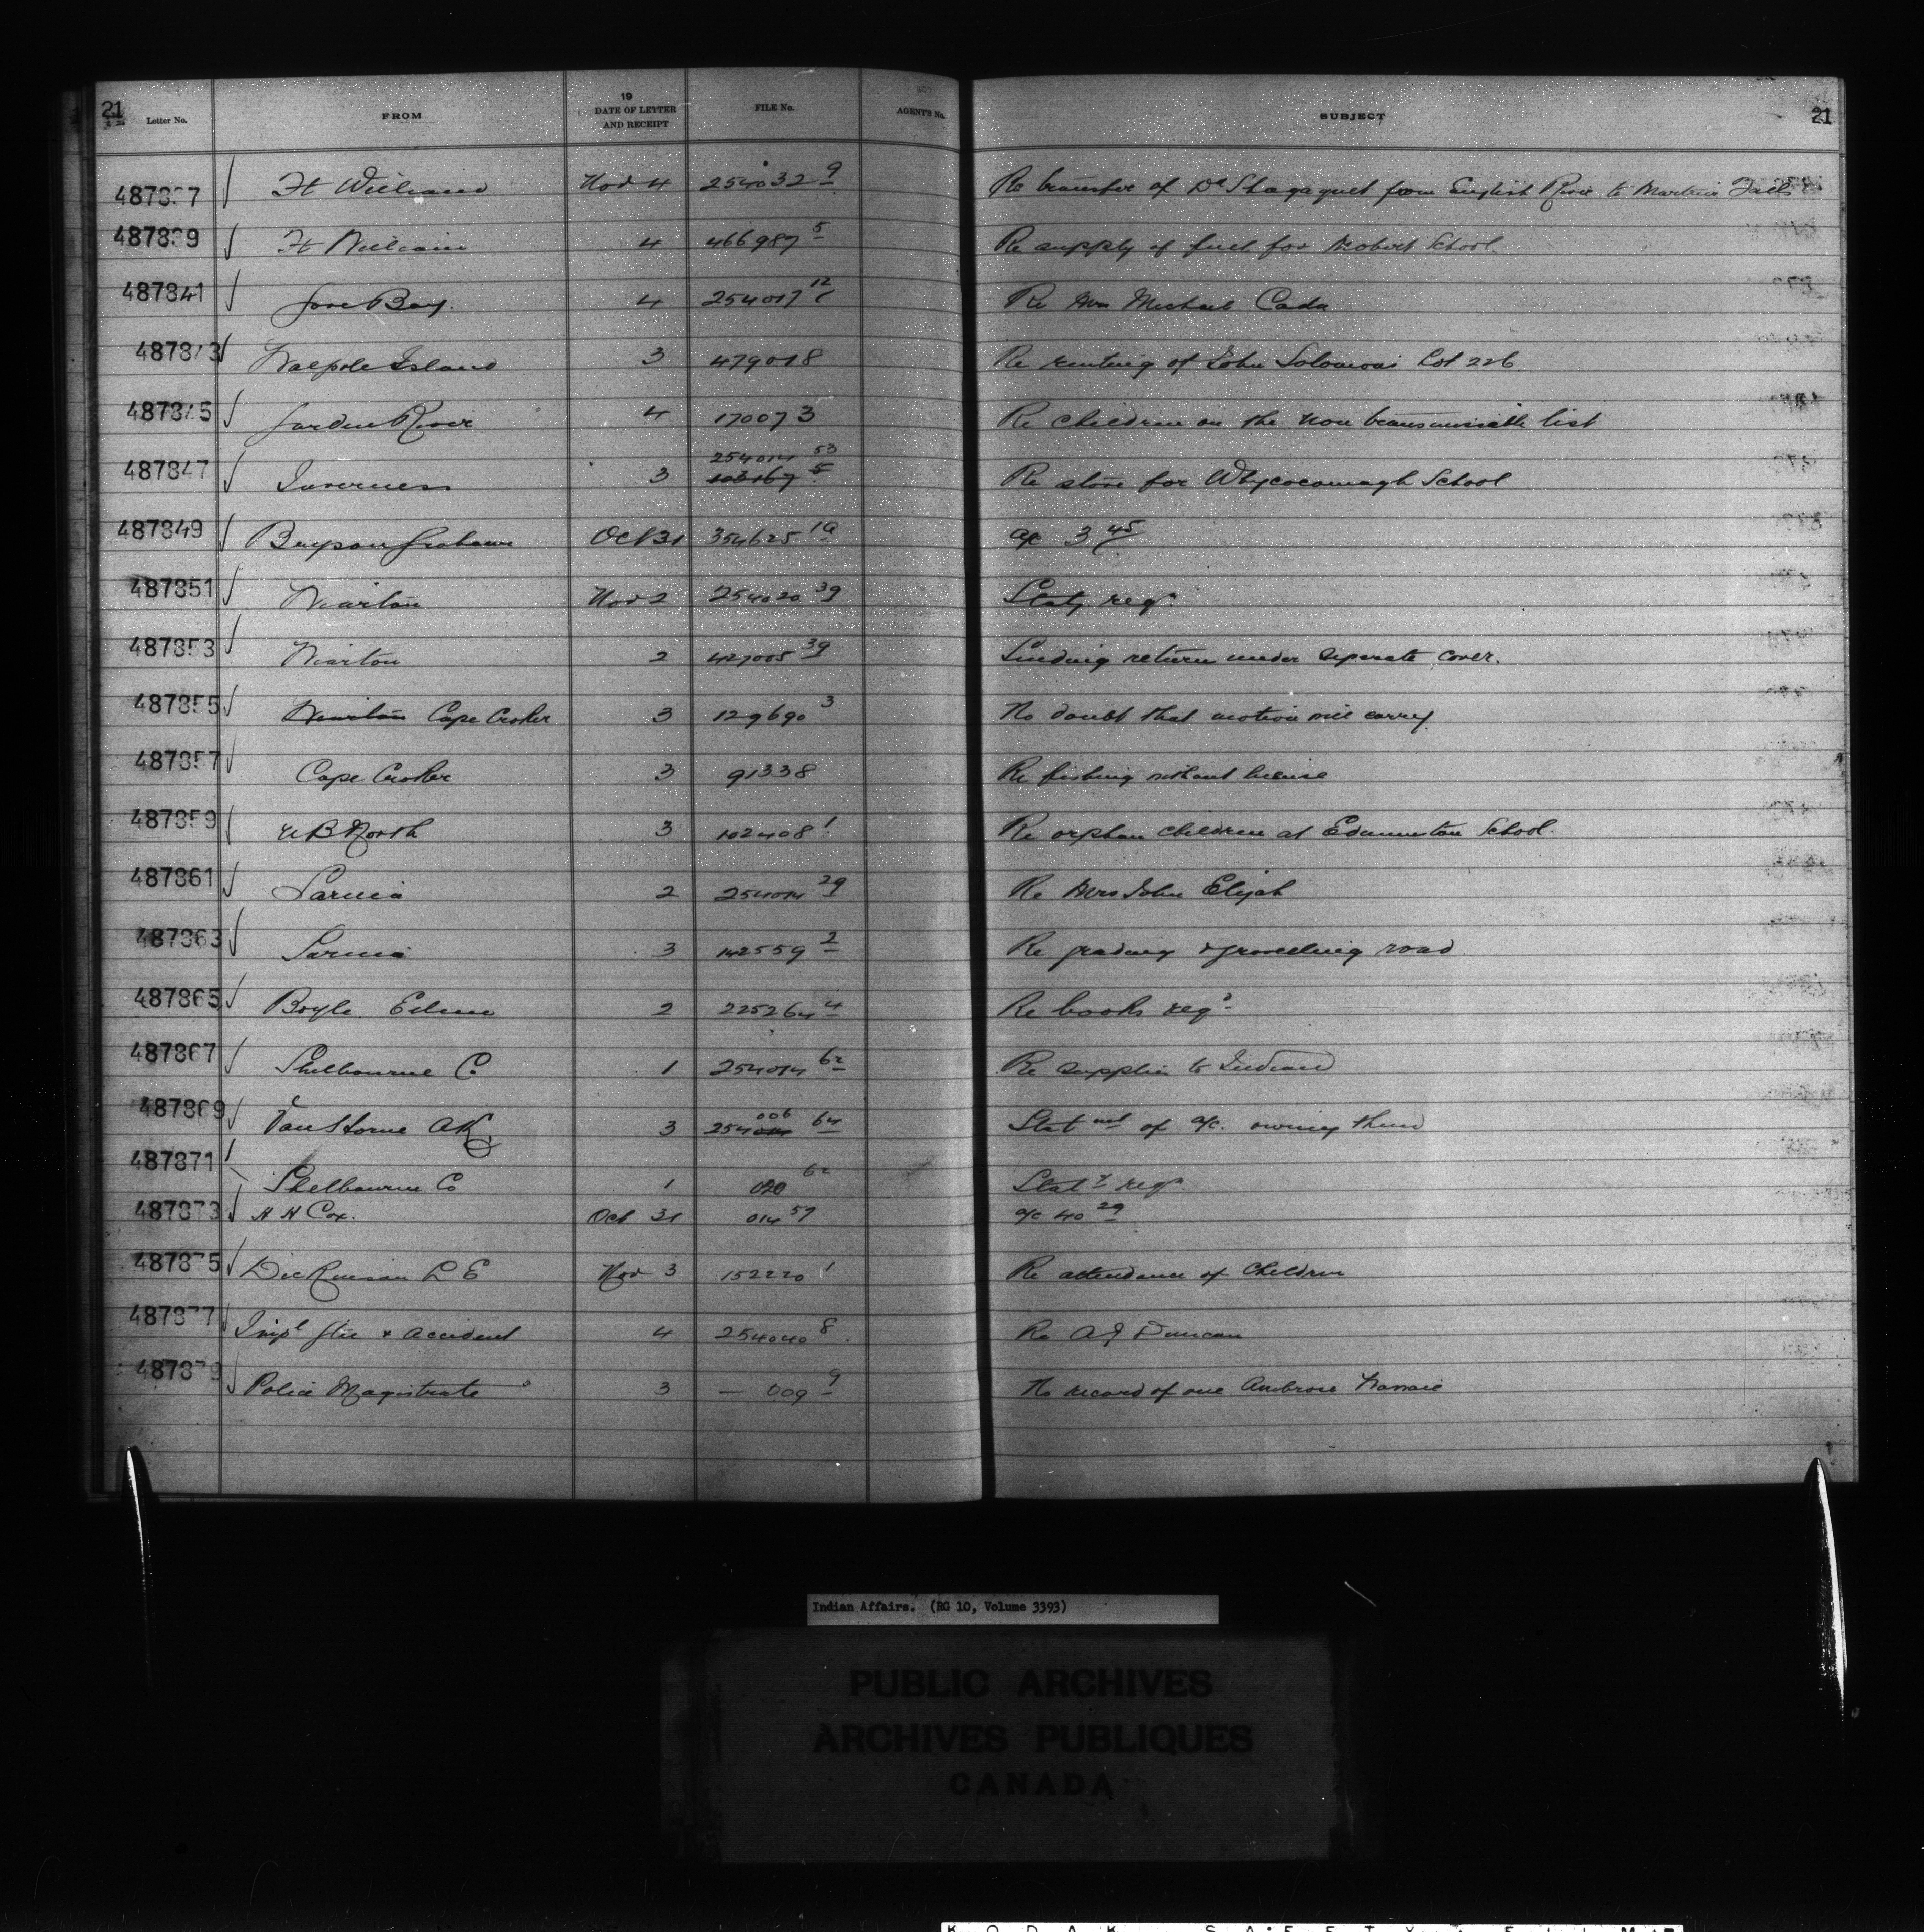 21 Letter No. FROM 19 DATE OF LETTER AND RECEIPT FILE No. AGENT'S No. SUBJECT 21
487837 Ft William Nov 4 254032 9 Re transfer of Dr from English River to Martins Falls
487839 Ft William 4 466987 5 Re supply of fuel for Mobert School.
487841 Gore Bay. 4 254017 12 Re Mrs Michael Cada
487843 Walpole Island 3 479018 Re renting of John Solomons Lot 226
487845 Garden River 4 170073 Re children on the non transmissible list
487847 Inverness 3 254014 53 103167 5 Re stove for Whycocomagh School
487849 Bryson Graham Oct 31 354625 1a a/c 3 45
487851 Wiarton Nov 2 254020 39 Staty reqn
487853 Wiarton 2 427005 39 Sending return under separate cover.
487855 Wiarton Cape Croker 3 129690 3 No doubt that motion will carry
487857 Cape Croker 3 91338 Re fishing without license
487859 North 3 102408 1 Re orphan children at Edmunston School.
487861 Sarnia 2 254014 29 Re Mrs John Elijah
487863 Sarnia 3 142559 2 Re grading & gravelling road
487865 Boyle 2 225264 4 Re books reqd
487867 Shelbourne C. 1 254014 62 Re supplies to Indians
487869 VanHorne AK 3 254014 006 64 Statmt of a/c. owing them
487871 Shelbourne Co 1 020 62 Staty reqn
487873 H H Cox. Oct 31 014 57 a/c 40 29
487875 Dickinson L E Nov 3 152220 1 Re attendance of Children
487877 Impl Gtee & Accident 4 254040 8 Re A J Duncan
487879 Police Magistrate 3 — 009 9 No record of one Ambrose
Indian Affairs. (RG 10, Volume 3393)
PUBLIC ARCHIVES
ARCHIVES PUBLIQUES
CANADA
KODAK SAFETY FILM